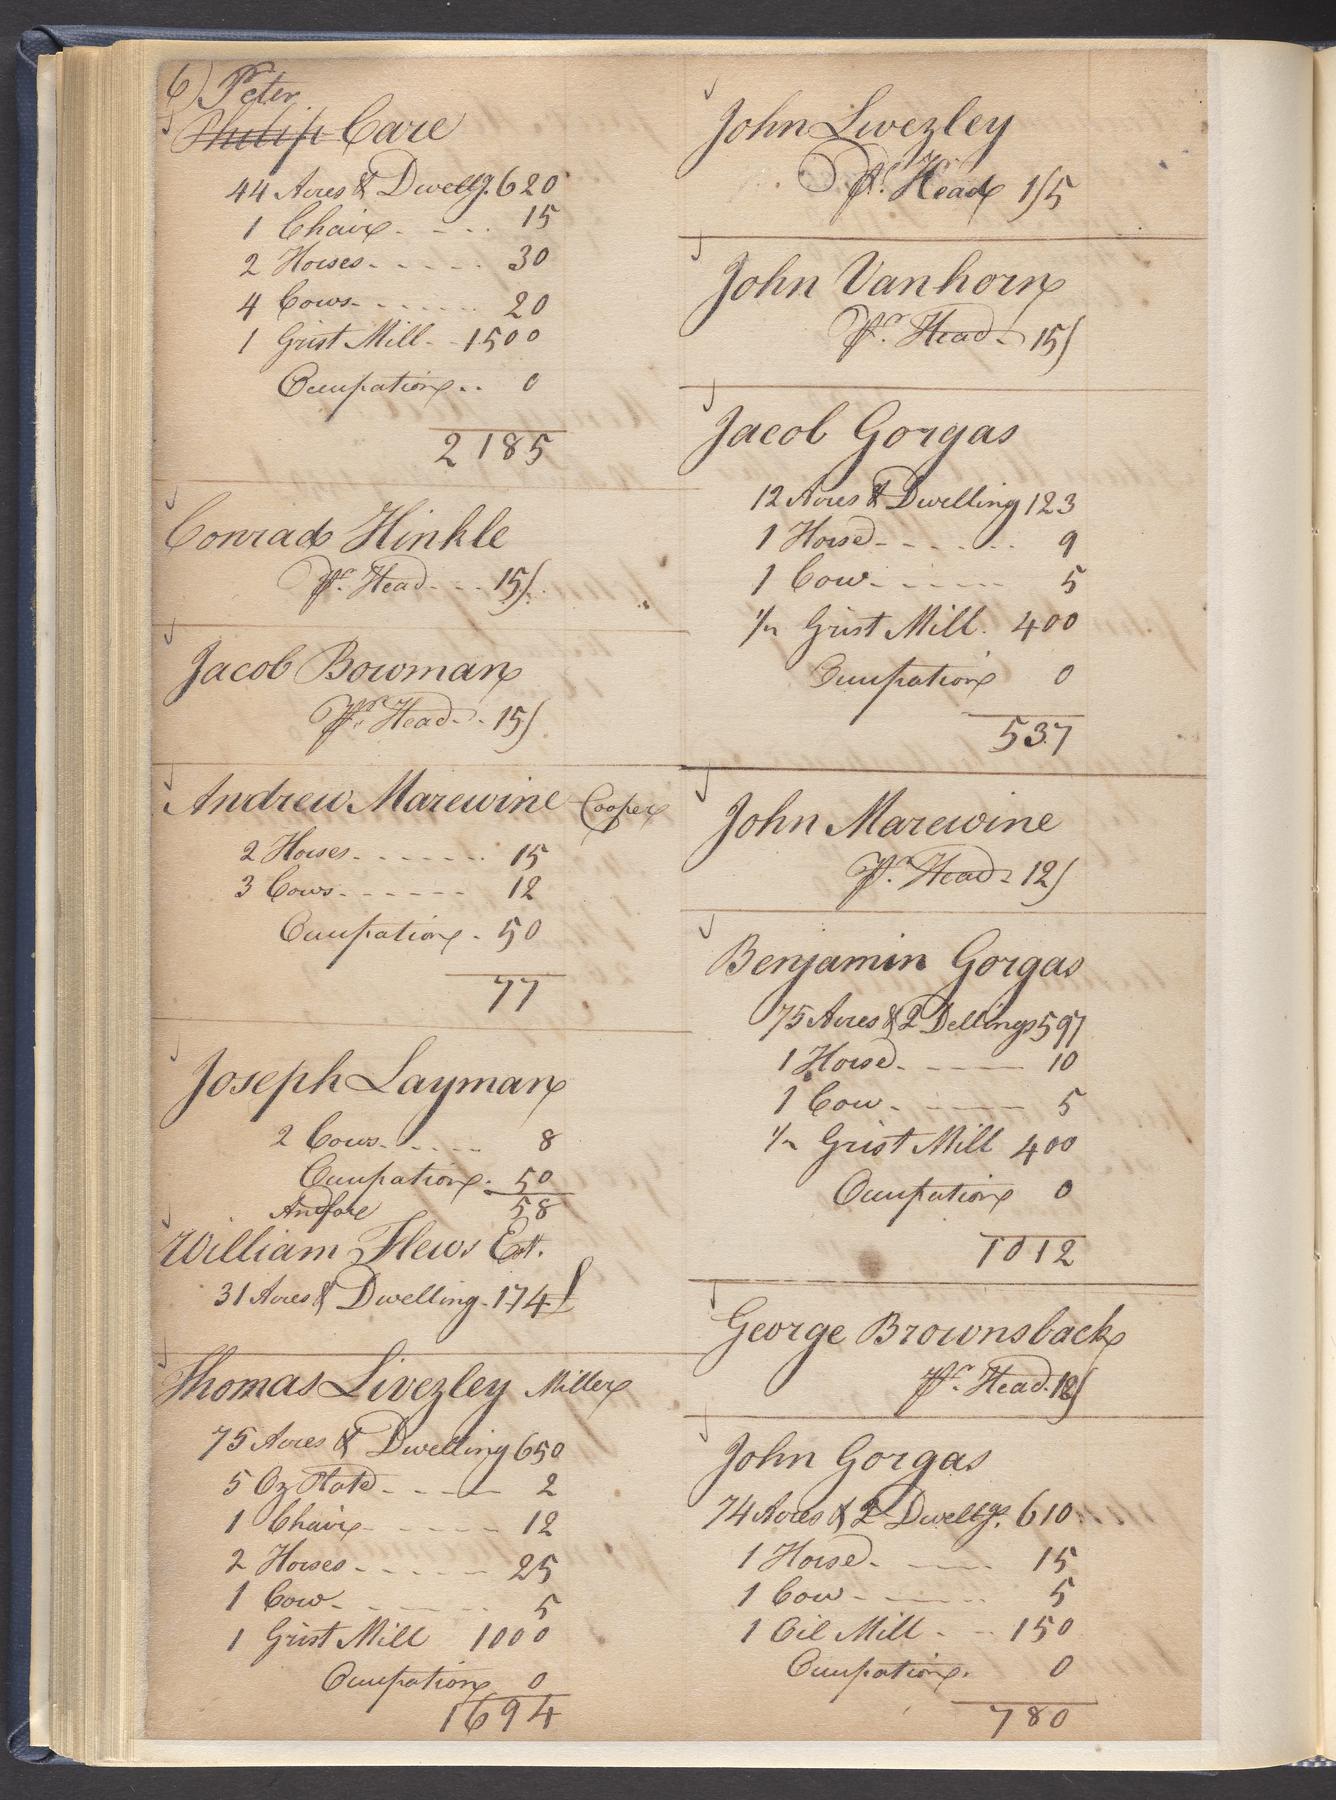 6) Peter
Philip Care
44 Acres & Dwellg. 620
1 Chair - - - - 15
2 Horses - - - - - 30
4 Cows - - - - - - 20
1 Grist Mill - - 1500
Occupation - - 0
2185
Conrad Hinkle
Pr. Head - - - 15/
Jacob Bowman
Pr. Head - - 15/
Andrew Marewine Cooper
2 Horses - - - - - - 15
3 Cows - - - - - - 12
Occupation - 50
77
Joseph Layman
2 Cows - - - - - 8
Occupation - 50
58
And for
William Flews Est.
31 Acres & Dwelling - 174£
Thomas Livezley Miller
75 Acres & Dwelling 650
5 Oz Plate - - - - 2
1 Chair - - - - - 12
2 Horses - - - - - 25
1 Cow - - - - - 5
1 Grist Mill 1000
Occupation 0
1694
John Livezley
Pr. Head 15
John Vanhorn
Pr. Head - 15/
Jacob Gorgas
12 Acres & Dwelling 123
1 Horse - - - - - - 9
1 Cow - - - - - 5
1/2 Grist Mill. 400
Occupation 0
537
John Marewine
Pr. Head - 12/
Benjamin Gorgas
75 Acres & 2 Dellings 597
1 Horse - - - - 10
1 Cow - - - - 5
1/2 Grist Mill 400
Occupation 0
1012
George Brownsback
Pr. Head. 12/
John Gorgas
74 Acres & 2 Dwellgs. 610
1 Horse - - - - 15
1 Cow - - - - 5
1 Oil Mill - - - 150
Occupation. 0
780